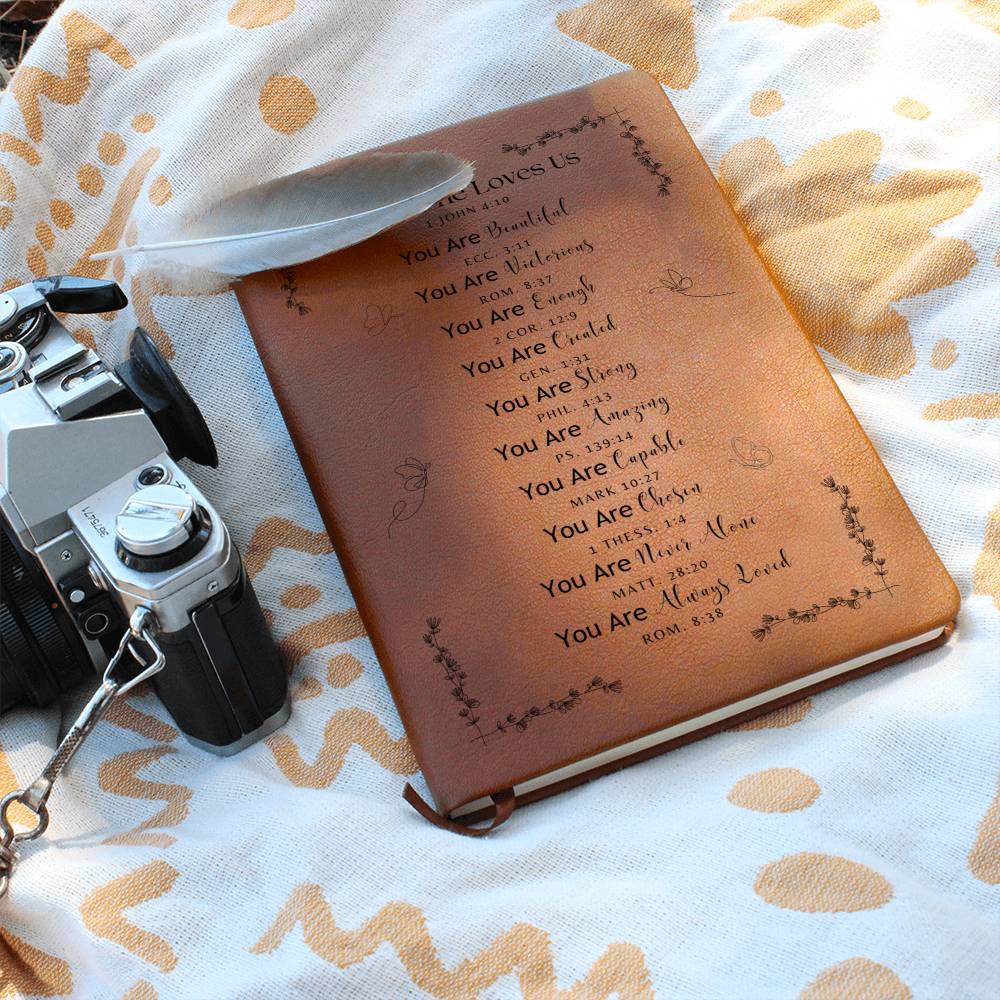 Loves Us
1 JOHN 4:10
You Are Beautiful
ECC. 3:11
You Are Victorious
ROM. 8:37
You Are Enough
2 COR. 12:9
You Are Created
GEN. 1:31
You Are Strong
PHIL. 4:13
You Are Amazing
PS. 139:14
You Are Capable
MARK 10:27
You Are Chosen
1 THESS. 1:4
You Are Never Alone
MATT. 28:20
You Are Always Loved
ROM. 8:38